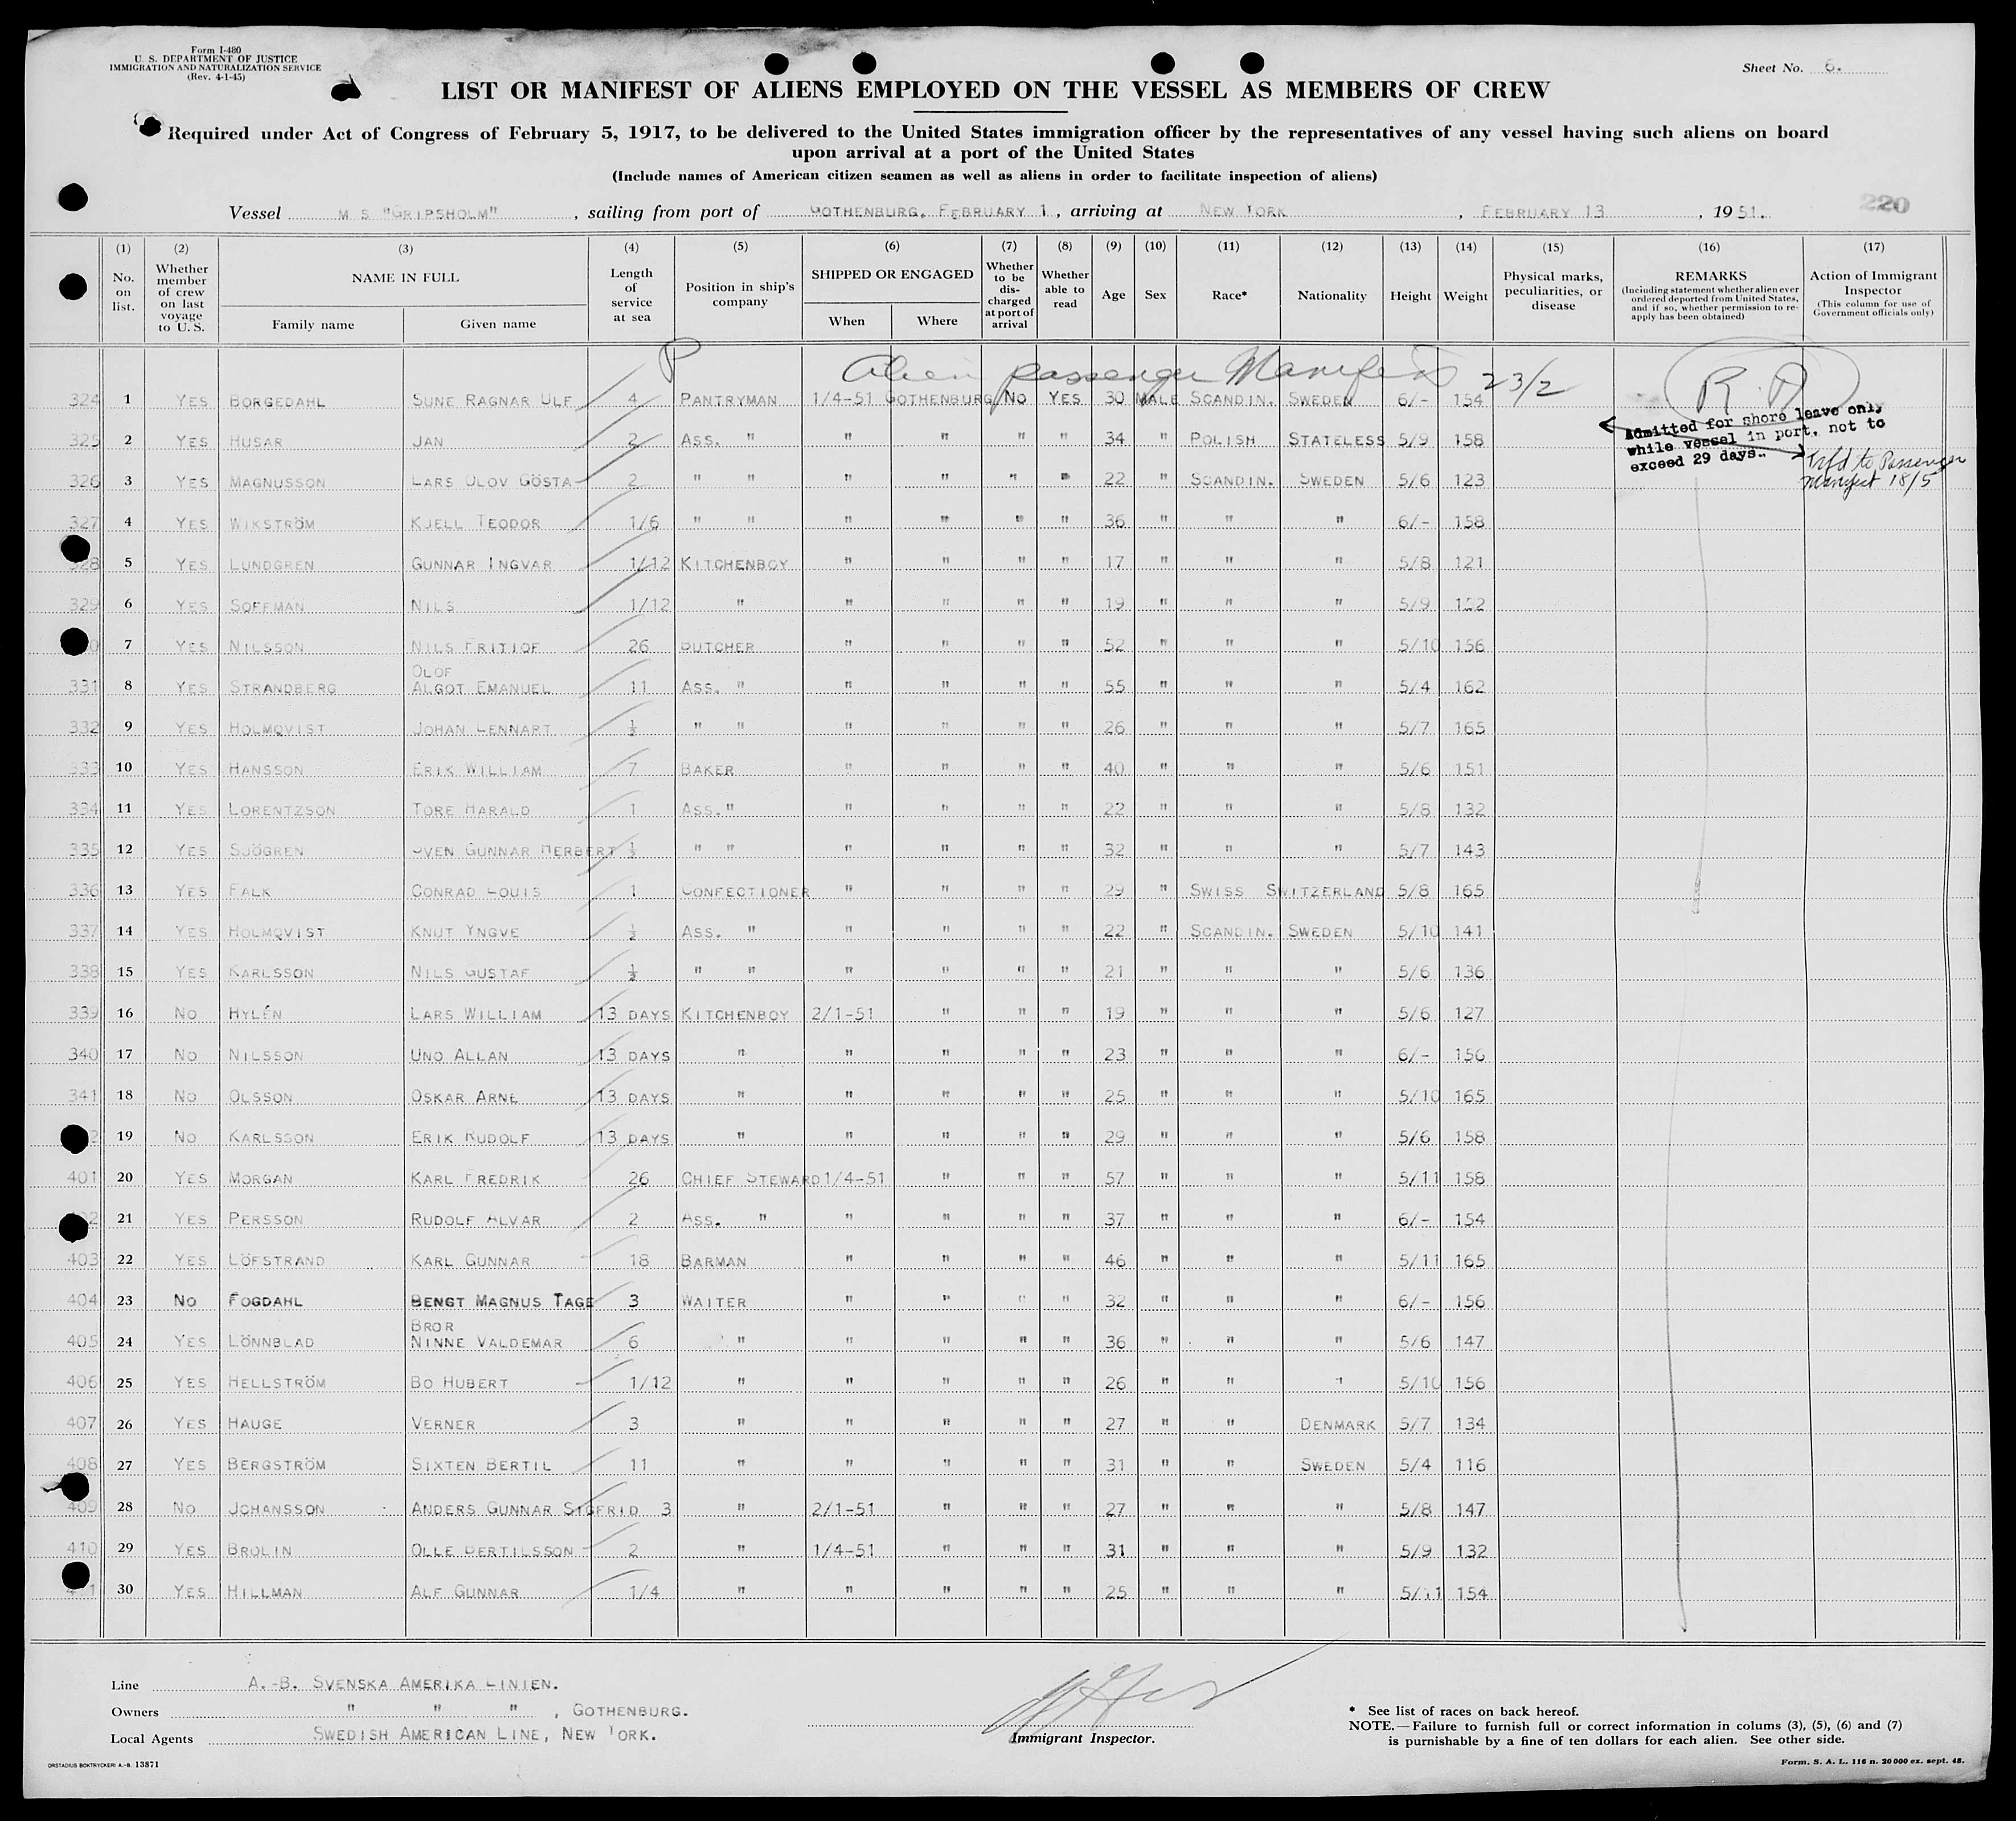 Form I-480
U. S. DEPARTMENT OF JUSTICE
IMMIGRATION AND NATURALIZATION SERVICE
(Rev. 4-1-45)
Sheet No. 6.
LIST OR MANIFEST OF ALIENS EMPLOYED ON THE VESSEL AS MEMBERS OF CREW
Required under Act of Congress of February 5, 1917, to be delivered to the United States immigration officer by the representatives of any vessel having such aliens on board
upon arrival at a port of the United States
(Include names of American citizen seamen as well as aliens in order to facilitate inspection of aliens)
Vessel M S "GRIPSHOLM", sailing from port of GOTHENBURG, FEBRUARY 1, arriving at NEW YORK, FEBRUARY 13, 1951. 220
(1) No. on list. (2) Whether member of crew on last voyage to U. S. (3) NAME IN FULL Family name Given name (4) Length of service at sea (5) Position in ship's company (6) SHIPPED OR ENGAGED When Where (7) Whether to be discharged at port of arrival (8) Whether able to read (9) Age (10) Sex (11) Race* (12) Nationality (13) Height (14) Weight (15) Physical marks, peculiarities, or disease (16) REMARKS (Including statement whether alien ever ordered deported from United States, and if so, whether permission to reapply has been obtained) (17) Action of Immigrant Inspector (This column for use of Government officials only)
P Alien passenger Manifest 23/2
324 1 YES BORGEDAHL SUNE RAGNAR ULF 4 PANTRYMAN 1/4-51 GOTHENBURG NO YES 30 MALE SCANDIN. SWEDEN 6/- 154
Admitted for shore leave only
while vessel in port, not to
exceed 29 days.
Trfd to Passenger
Manifest 18/5
325 2 YES HUSAR JAN 2 ASS. " " " " " 34 " POLISH STATELESS 5/9 158
326 3 YES MAGNUSSON LARS OLOV GÖSTA 2 " " " " " " 22 " SCANDIN. SWEDEN 5/6 123
327 4 YES WIKSTRÖM KJELL TEODOR 1/6 " " " " " " 36 " " " 6/- 158
328 5 YES LUNDGREN GUNNAR INGVAR 1/12 KITCHENBOY " " " " 17 " " " 5/8 121
329 6 YES SOFFMAN NILS 1/12 " " " " " 19 " " " 5/9
0 7 YES NILSSON NILS FRITIOF 26 BUTCHER " " " " 52 " " " 5/10 156
331 8 YES STRANDBERG OLOF ALGOT EMANUEL 11 ASS. " " " " " 55 " " " 5/4 162
332 9 YES HOLMQVIST JOHAN LENNART ½ " " " " " " 26 " " " 5/7 165
333 10 YES HANSSON ERIK WILLIAM 7 BAKER " " " " 40 " " " 5/6 151
334 11 YES LORENTZSON TORE HARALD 1 ASS." " " " " 22 " " " 5/8 132
335 12 YES SJÖGREN SVEN GUNNAR HERBERT ½ " " " " " " 32 " " " 5/7 143
336 13 YES FALK CONRAD LOUIS 1 CONFECTIONER " " " " 29 " SWISS SWITZERLAND 5/8 165
337 14 YES HOLMQVIST KNUT YNGVE ½ ASS. " " " " " 22 " SCANDIN. SWEDEN 5/10 141
338 15 YES KARLSSON NILS GUSTAF ½ " " " " " " 21 " " " 5/6 136
339 16 NO HYLÉN LARS WILLIAM 13 DAYS KITCHENBOY 2/1-51 " " " 19 " " " 5/6 127
340 17 NO NILSSON UNO ALLAN 13 DAYS " " " " " 23 " " " 6/- 156
341 18 NO OLSSON OSKAR ARNE 13 DAYS " " " " " 25 " " " 5/10 165
2 19 NO KARLSSON ERIK RUDOLF 13 DAYS " " " " " 29 " " " 5/6 158
401 20 YES MORGAN KARL FREDRIK 26 CHIEF STEWARD 1/4-51 " " " 57 " " " 5/11 158
02 21 YES PERSSON RUDOLF ALVAR 2 ASS. " " " " " 37 " " " 6/- 154
403 22 YES LÖFSTRAND KARL GUNNAR 18 BARMAN " " " " 46 " " " 5/11 165
404 23 NO FOGDAHL BENGT MAGNUS TAGE 3 WAITER " " " " 32 " " " 6/- 156
405 24 YES LÖNNBLAD BROR NINNE VALDEMAR 6 " " " " " 36 " " " 5/6 147
406 25 YES HELLSTRÖM BO HUBERT 1/12 " " " " " 26 " " " 5/10 156
407 26 YES HAUGE VERNER 3 " " " " " 27 " " DENMARK 5/7 134
408 27 YES BERGSTRÖM SIXTEN BERTIL 11 " " " " " 31 " " SWEDEN 5/4 116
409 28 NO JOHANSSON ANDERS GUNNAR SIGFRID 3 " 2/1-51 " " " 27 " " " 5/8 147
410 29 YES BROLIN OLLE BERTILSSON 2 " 1/4-51 " " " 31 " " " 5/9 132
1 30 YES HILLMAN ALF GUNNAR 1/4 " " " " " 25 " " " 5/11 154
Line A.-B. SVENSKA AMERIKA LINIEN.
Owners " " ", GOTHENBURG.
Local Agents SWEDISH AMERICAN LINE, NEW YORK.
Immigrant Inspector.
* See list of races on back hereof.
NOTE.—Failure to furnish full or correct information in colums (3), (5), (6) and (7)
is punishable by a fine of ten dollars for each alien. See other side.
ORSTADIUS BOKTRYCKERI A.-B. 13871
Form. S. A. L. 116 n. 20 000 ex. sept. 48.